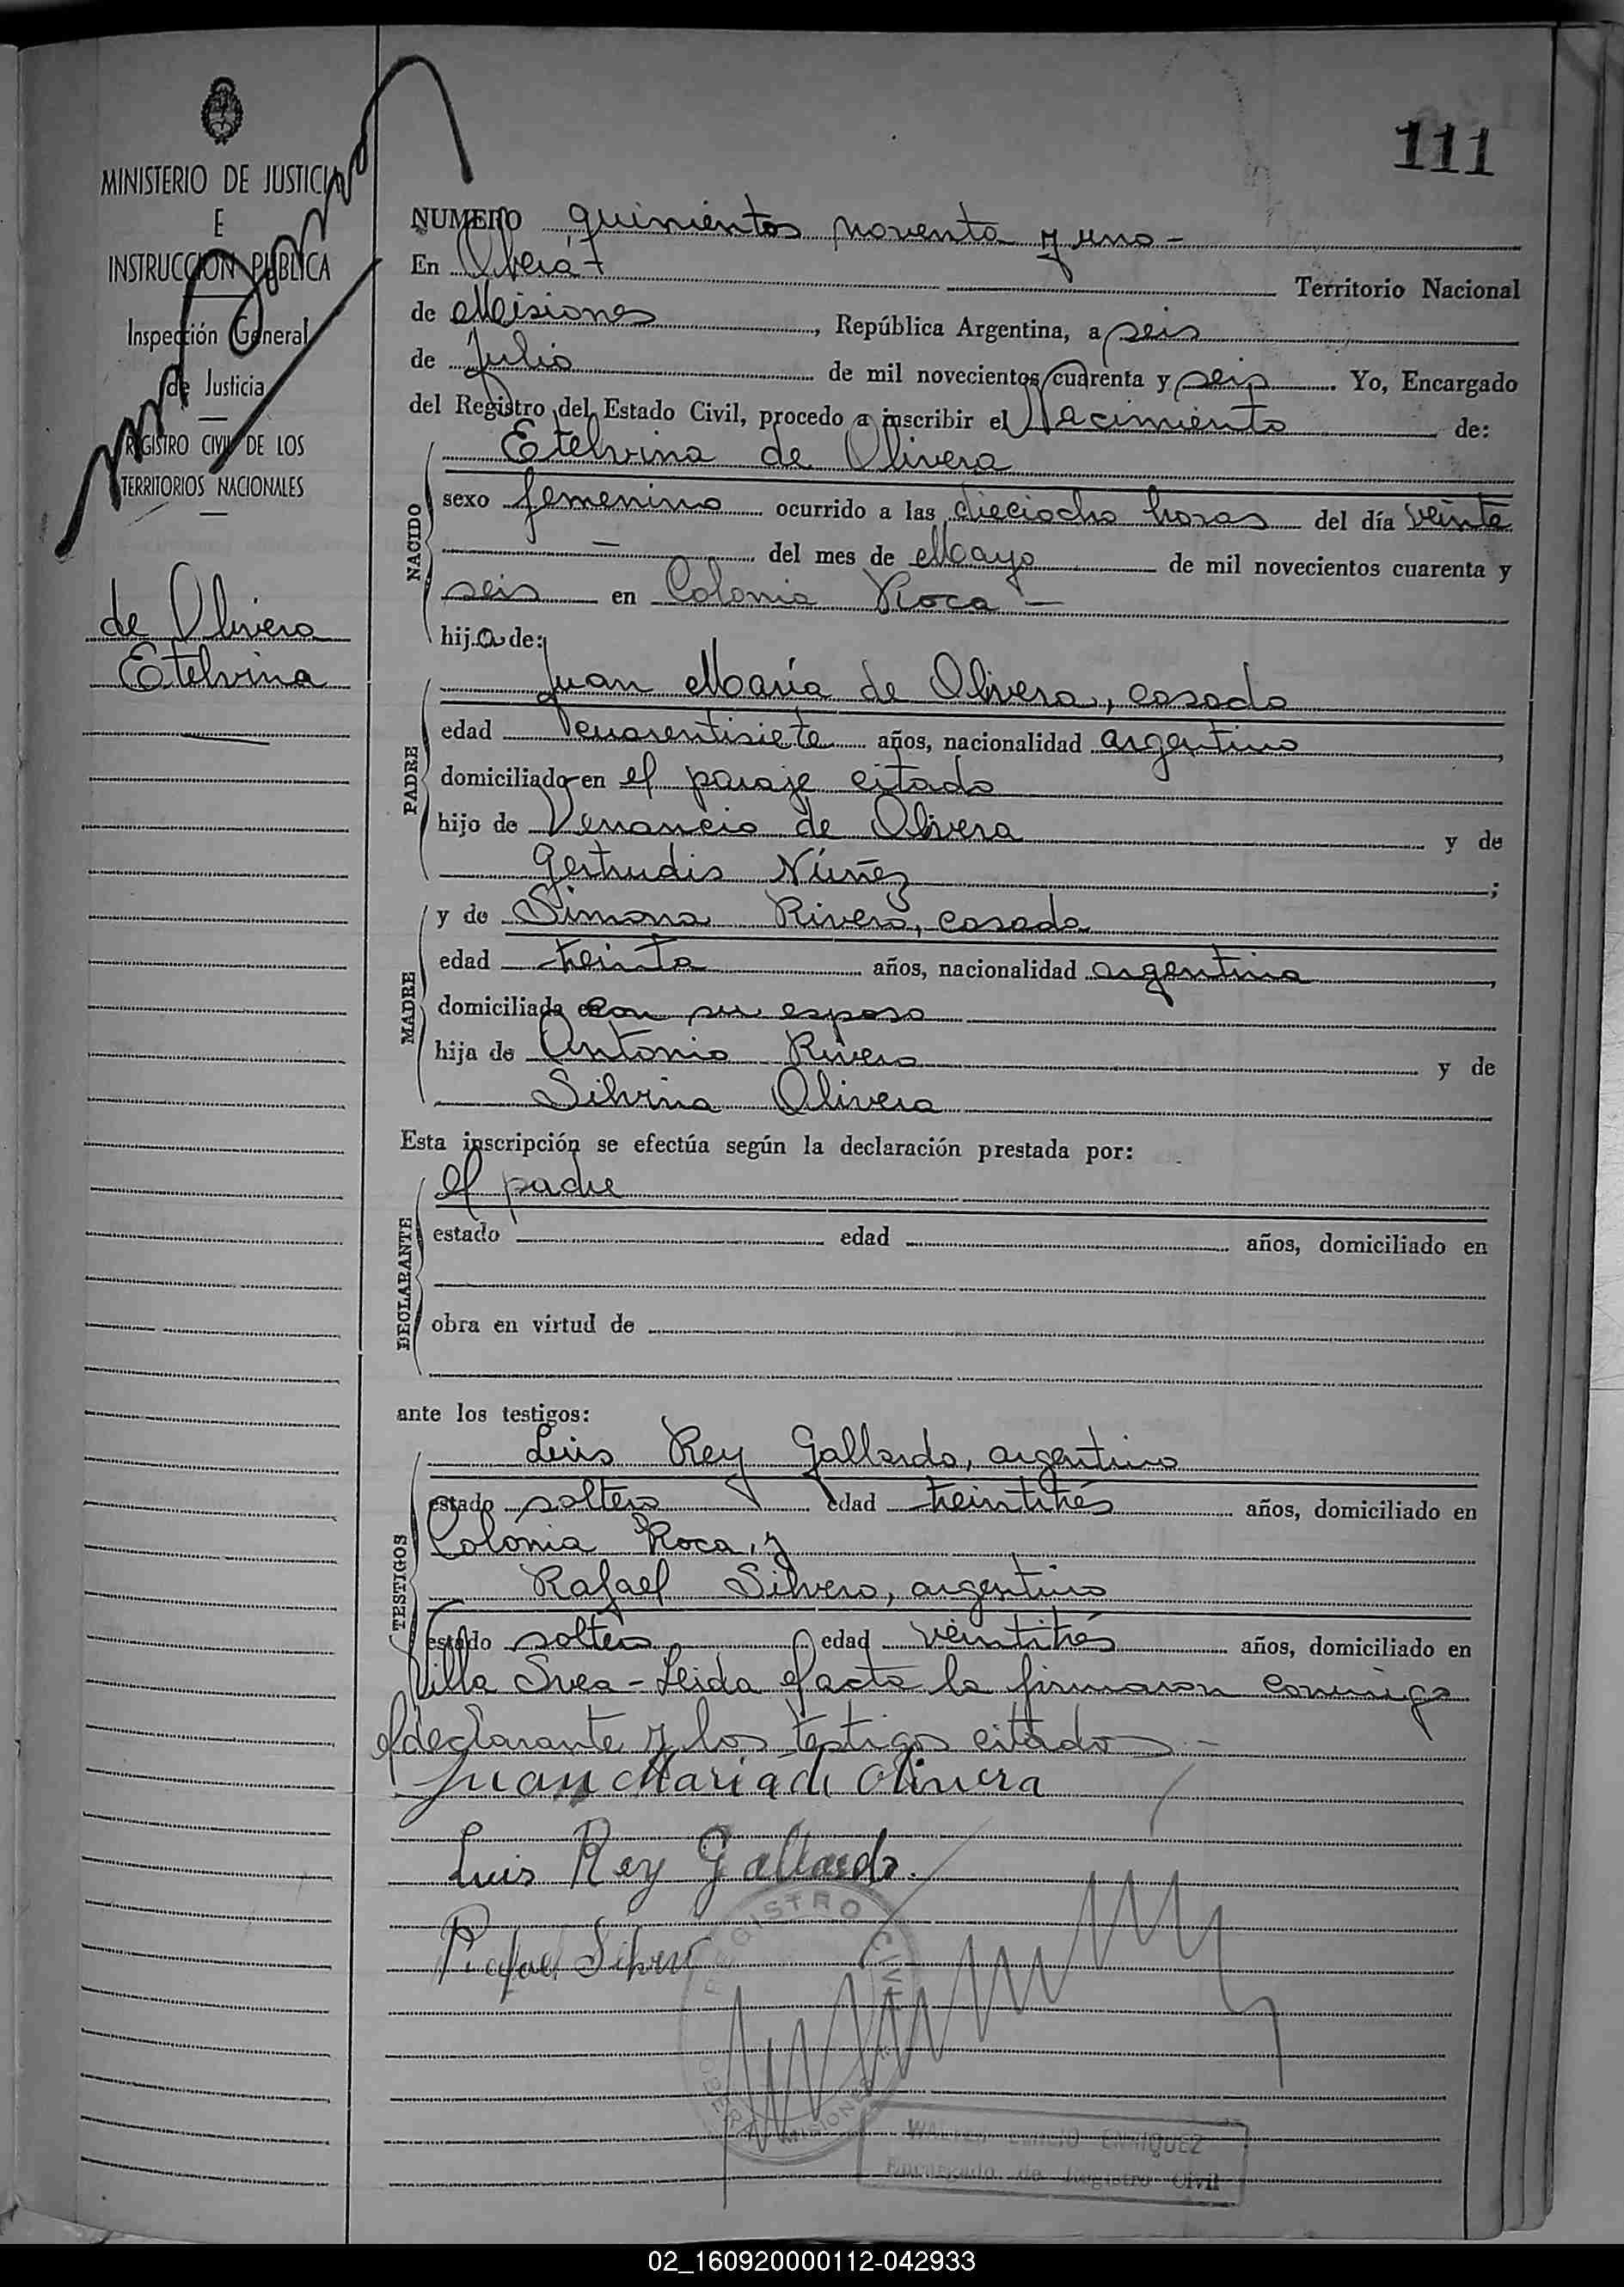 111
MINISTERIO DE JUSTICIA
E
INSTRUCCION PUBLICA
Inspección General
de Justicia
REGISTRO CIVIL DE LOS
TERRITORIOS NACIONALES
de Olivera
Etelvina
NUMERO quinientos noventa y uno -
En Oberá Territorio Nacional
de Misiones, República Argentina, a seis
de Julio de mil novecientos cuarenta y seis. Yo, Encargado
del Registro del Estado Civil, procedo a inscribir el Nacimiento de:
NACIDO
Etelvina de Olivera
sexo femenino ocurrido a las dieciocho horas del día veinte
— del mes de Mayo de mil novecientos cuarenta y
seis en Colonia Roca -
hija de:
PADRE
Juan María de Olivera, casado
edad cuarentisiete años, nacionalidad argentino,
domiciliado en el paraje citado
hijo de Venancio de Olivera y de
Gertrudis Núñez;
MADRE
y de Simona Rivero, casada
edad treinta años, nacionalidad argentina,
domiciliada con su esposo
hija de Antonio Rivero y de
Silvina Olivera
Esta inscripción se efectúa según la declaración prestada por:
DECLARANTE
el padre
estado edad años, domiciliado en
obra en virtud de
ante los testigos:
TESTIGOS
Luis Rey Gallardo, argentino
estado soltero edad treintitrés años, domiciliado en
Colonia Roca, y
Rafael Silvero, argentino
estado soltero edad veintitrés años, domiciliado en
Villa Svea - Leida el acta la firmaron conmigo
el declarante y los testigos citados -
Juan Maria de Olivera
Luis Rey Gallardo.
Rafael Silvero
REGISTRO CIVIL
OBERA MISIONES
WALTER EMILIO ENRIQUEZ
Encargado de Registro Civil
02_160920000112-042933